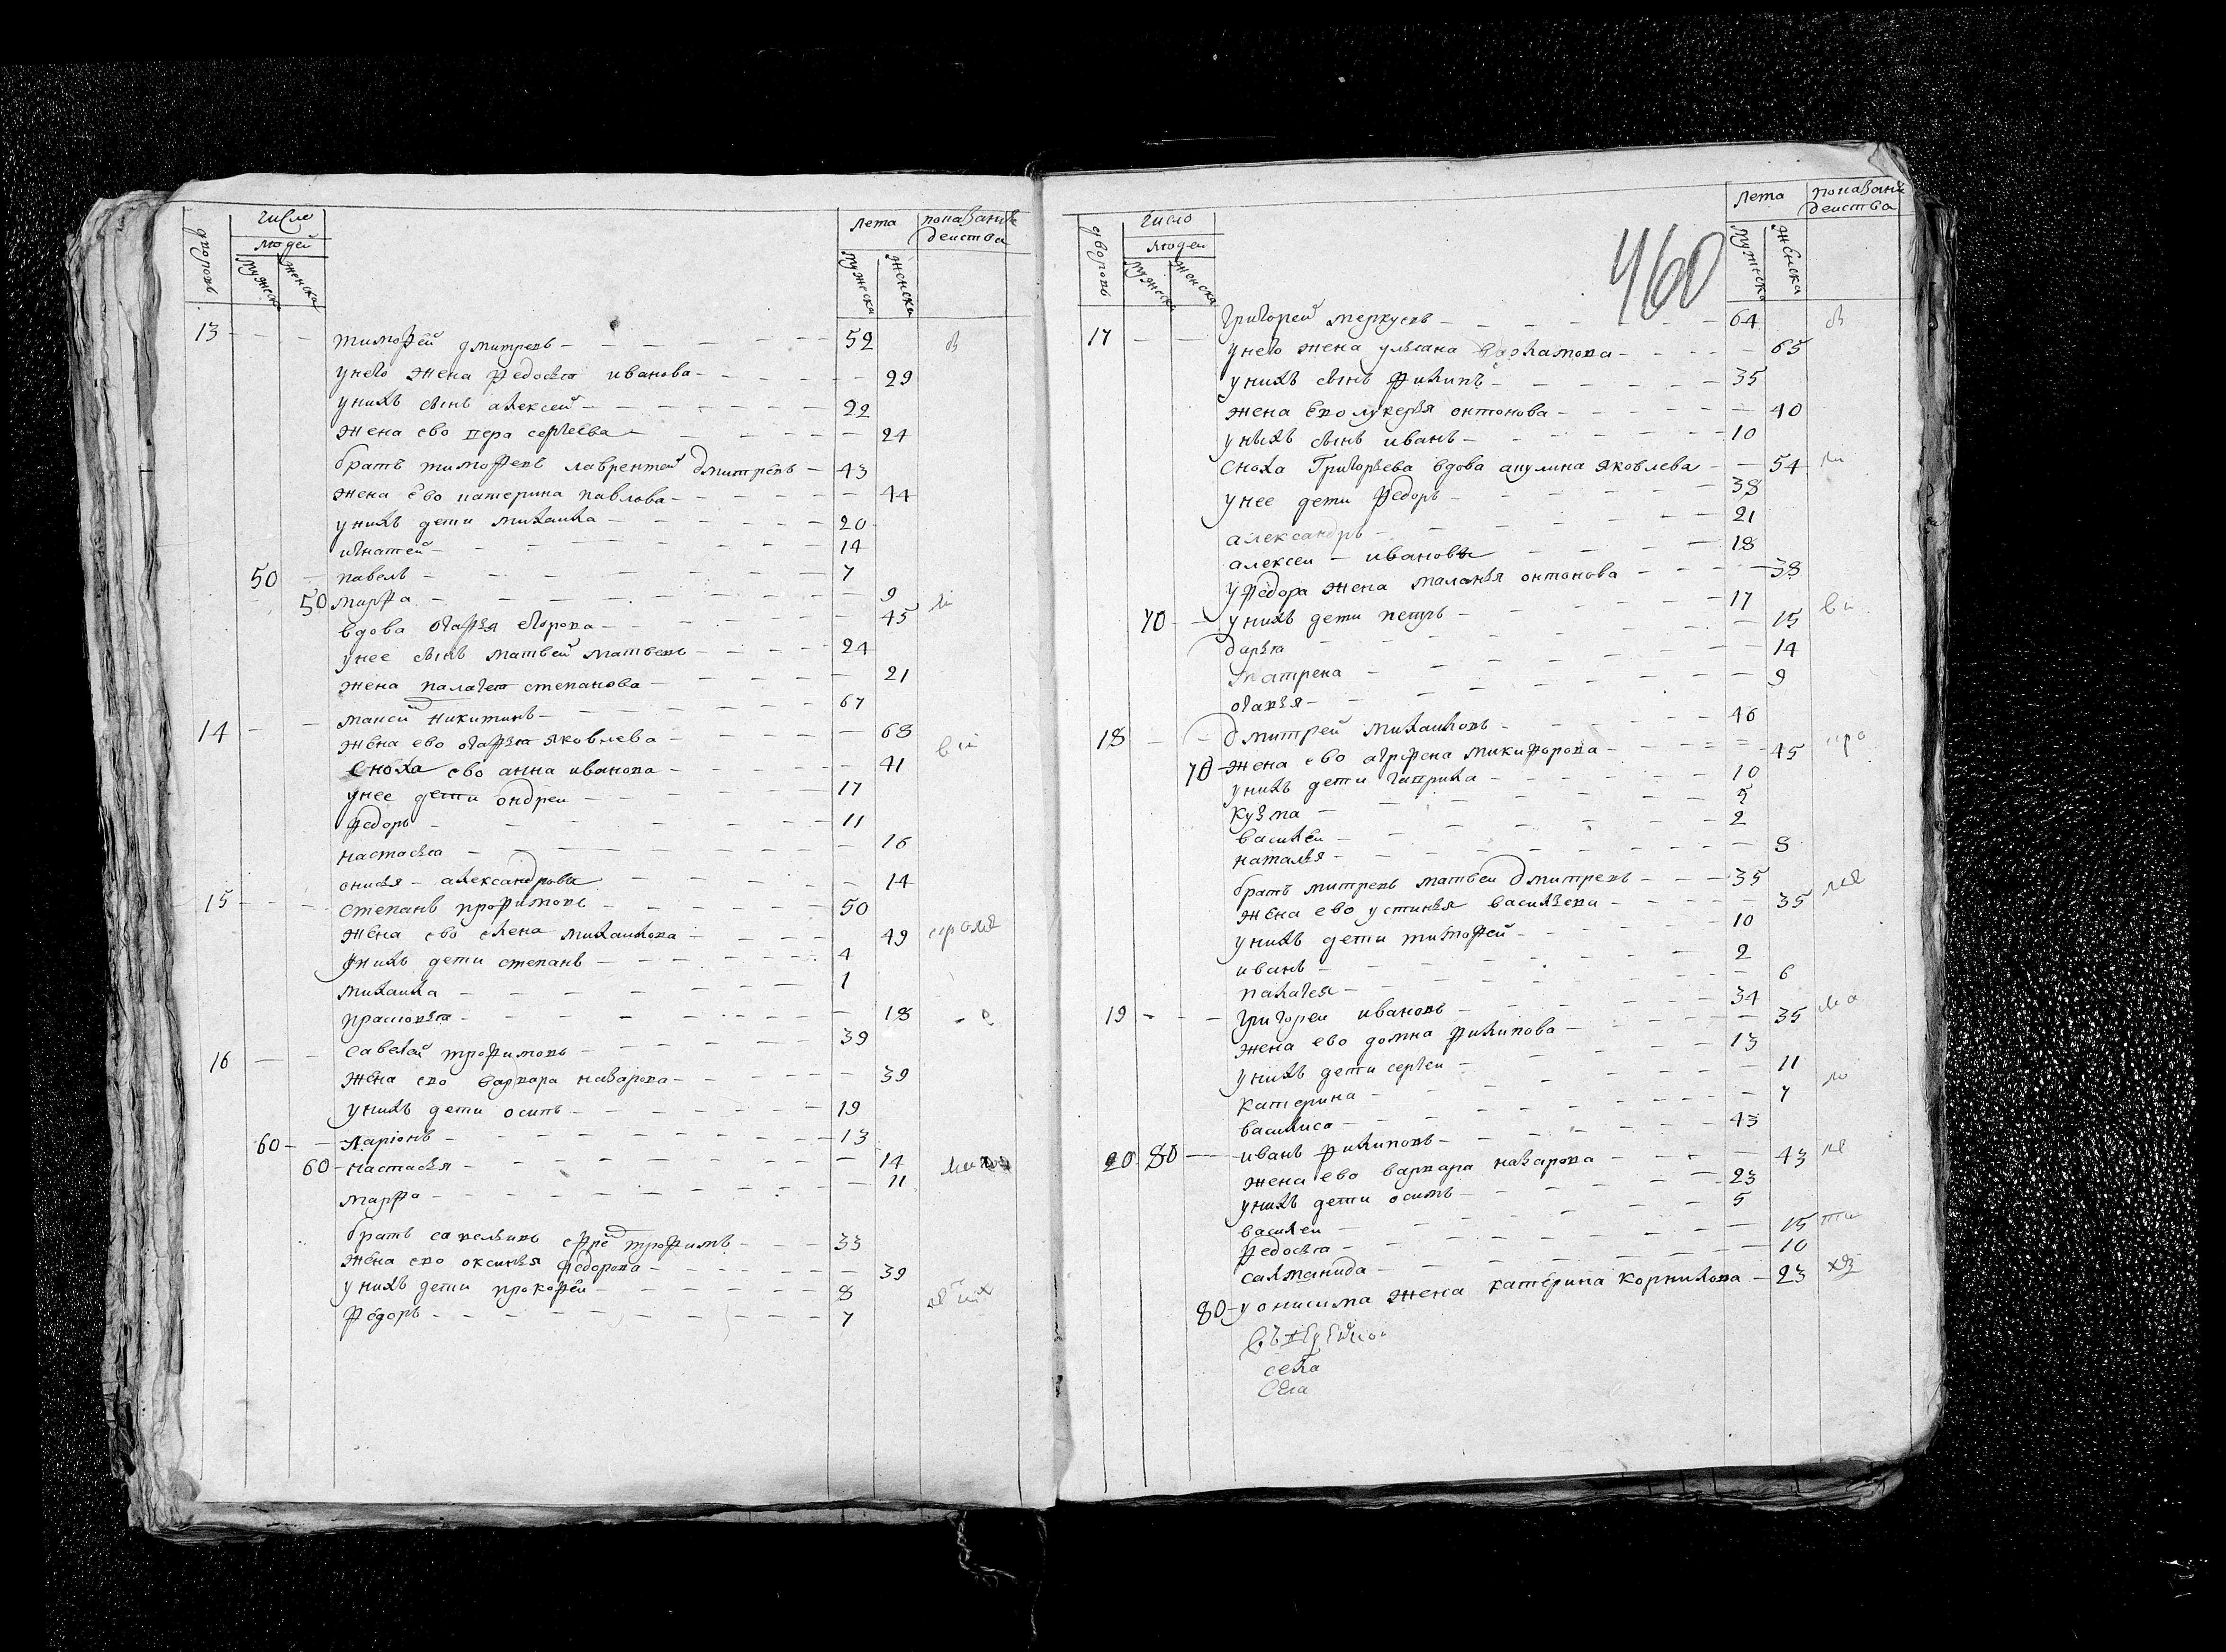 дворовъ число людей мужеска женска лета мужеска женска показание действа
13 тимофей дмитревъ 52
у него жена федосья иванова 29
у нихъ сынъ алексей 22
жена ево вера сергеева 24
братъ тимофевъ лаврентей дмитревъ 43
жена ево катерина павлова 44
у нихъ дети михаила 20
игнатей 14
50 павелъ 7
50 марфа 9
вдова огафья егорова 45
у нее сынъ матвей матвевъ 24
жена палагея степанова 21
14 никитинъ 67
жена ево огафья яковлева 68
сноха ево анна иванова 41
у нее дети ондреи 17
федоръ 11
настасья 16
онисья александровы 14
15 степанъ трофимовъ 50
жена ево елена михаилова 49
у нихъ дети степанъ 4
михаила 1
прасковья 18
16 савелей трофимовъ 39
жена ево варвара назарова 39
у нихъ дети осипъ 19
60 ларионъ 13
60 настасья 14
марфа 11
братъ савельивъ трофимъ 33
жена ево оксинья федорова 39
у нихъ дети прокофеи 8
федоръ 7
460
дворовъ число людей мужеска женска лета мужеска женска показание действа
17 григорей меркуевъ 64
у него жена ульяна варламова 65
у нихъ сынъ филипъ 35
жена ево лукерья онтонова 40
у нихъ сынъ иванъ 10
сноха григорьева вдова акулина яковлева 54
у нее дети федоръ 38
александръ 21
алексеи ивановы 18
у федора жена маланья онтонова 38
70 у нихъ дети петръ 17
дарья 15
матрена 14
огафья 9
18 дмитрей михаиловъ 46
70 жена ево агрфена микифорова 45
у нихъ дети гаврила 10
кузма 5
василеи 2
наталья 8
братъ митревъ матвеи дмитревъ 35
жена ево устинья васильева 35
у нихъ дети тимофей 10
иванъ 2
палагея 6
19 григореи ивановъ 34
жена ево домна филипова 35
у нихъ дети сергеи 13
катерина 11
василиса 7
20 80 иванъ филиповъ 43
жена ево варвара назарова 43
у нихъ дети осипъ 23
василеи 5
федосья 15
саламанида 10
80 у онисима жена катерина корнилова 23
села